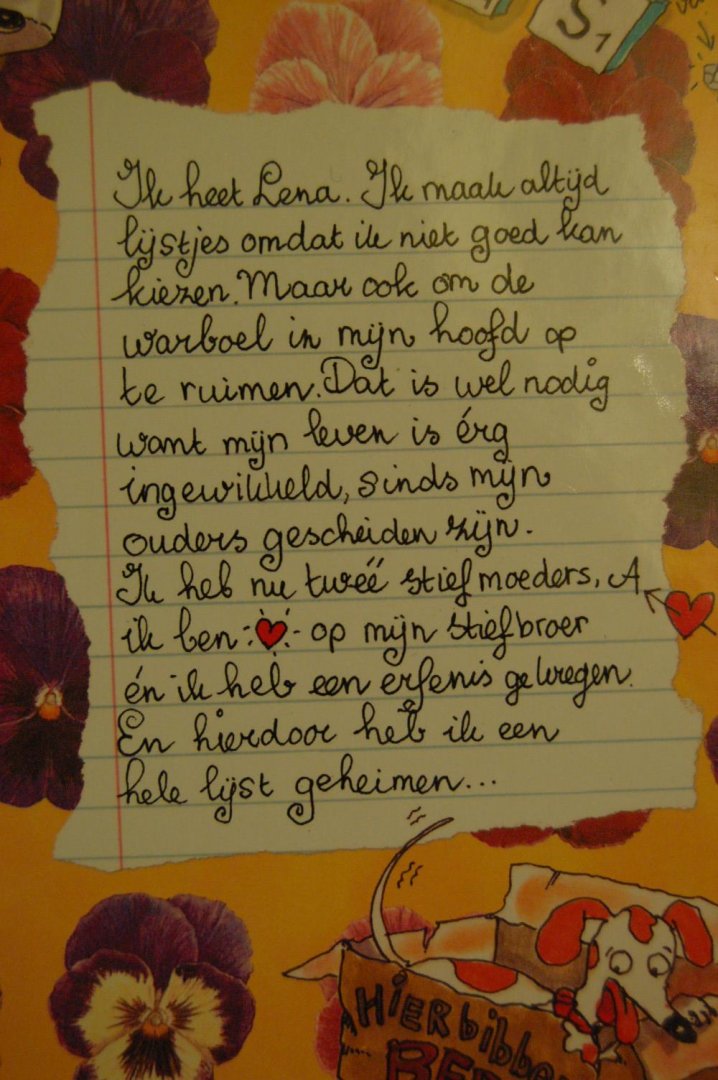 S
1
Ik heet Lena. Ik maak altijd
lijstjes omdat ik niet goed kan
kiezen. Maar ook om de
warboel in mijn hoofd op
te ruimen. Dat is wel nodig
want mijn leven is érg
ingewikkeld, sinds mijn
ouders gescheiden zijn.
Ik heb nu twéé stiefmoeders, A
ik ben ❤ op mijn stiefbroer
én ik heb een erfenis gekregen.
En hierdoor heb ik een
hele lijst geheimen...
HIER